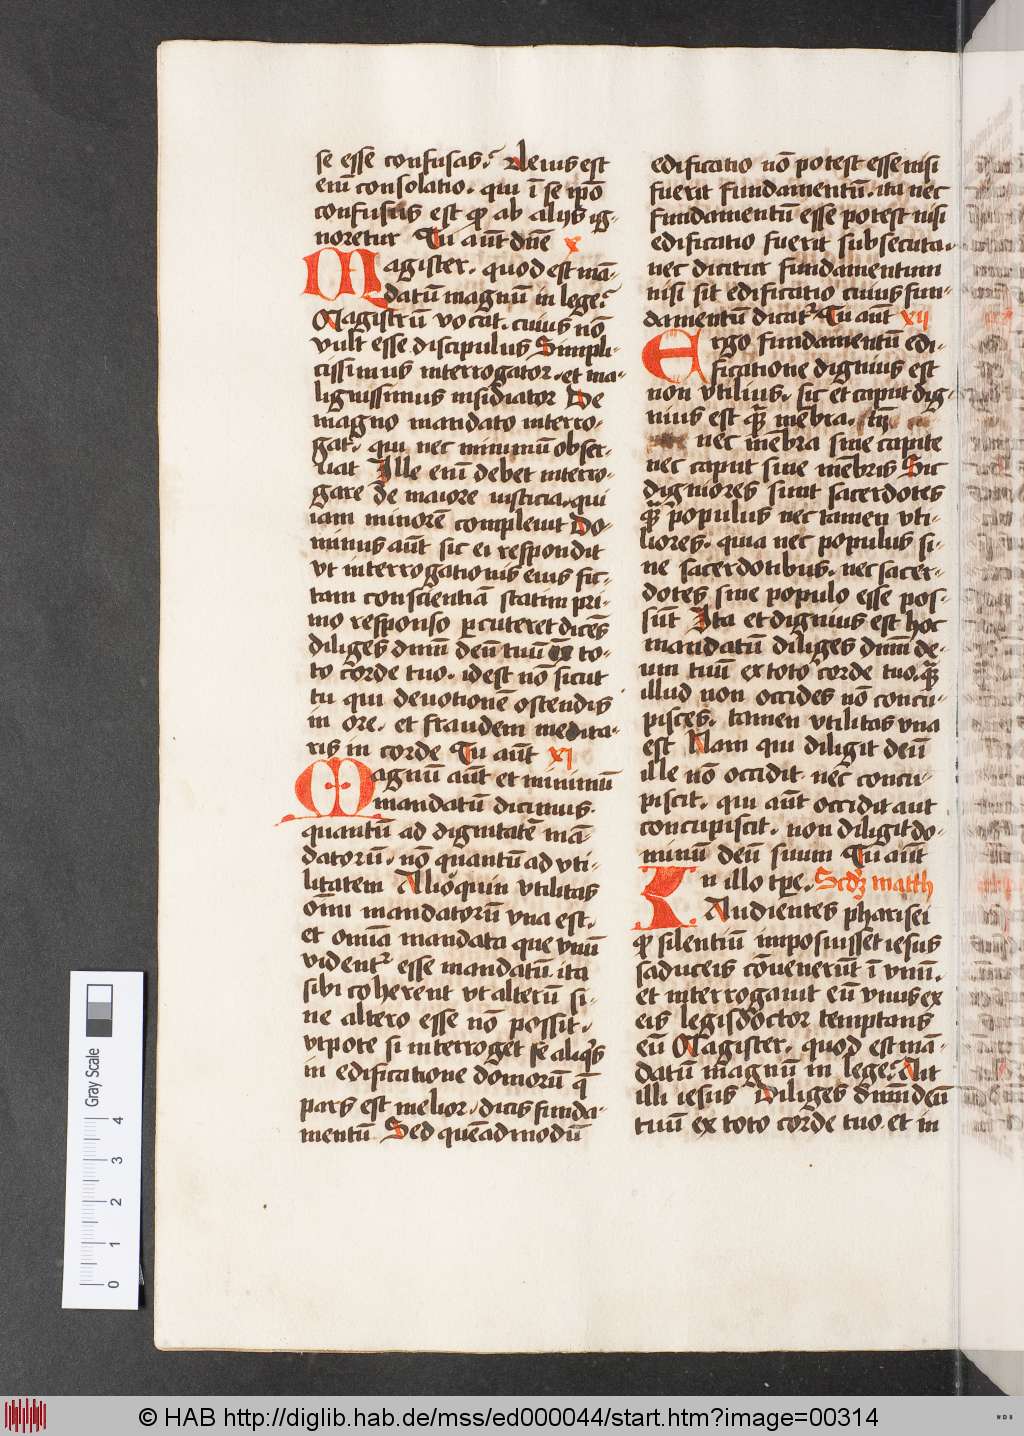 se esse confusas? Leuius est
eni̅ consolatio. qui i̅ se ip̅o
confusus est q̅ ab alijs ig-
noretur Tu aut̅ dn̅e x
Magister. quod est ma̅-
datu̅ magnu̅ in lege?
Magistru̅ vocat. cuius no̅
vult esse discipulus Simpli-
cissimus interrogator. et ma-
lignissimus insidiator De
magno mandato interro-
gat. qui nec minimu̅ obser-
uat Ille eni̅ debet interro-
gare de maiore iusticia. qui
iam minore̅ compleuit Do-
minus aut̅ sic ei respondit
vt interrogationis eius fic-
tam conscientia̅ statim pri-
mo responso p̲cuteret dice̅s
diliges dn̅m deu̅ tuu̅ to-
to corde tuo. idest no̅ sicut
tu qui deuotione̅ ostendis
in ore. et fraudem medita-
ris in corde Tu aut̅ xi
Magnu̅ aut̅ et minimu̅
mandatu̅ dicimus.
quantu̅ ad dignitate̅ ma̅-
datoru̅. no̅ quantu̅ ad vti-
litatem Alioquin vtilitas
om̅i mandatoru̅ vna est.
et omi̅a mandata que vnu̅
vident᷑ esse mandatu̅. ita
sibi coherent vt alteru̅ si-
ne altero esse no̅ possit.
vtpote si interroget se aliq̅s
in edificatione domoru̅ q̅
pars est melior. dicis funda-
mentu̅ Sed que̅admodu̅
edificatio no̅ potest esse nisi
fuerit fundamentu̅. ita nec
fundamentu̅ esse potest nisi
edificatio fuerit subsecuta.
nec dicitur fundamentum
nisi sit edificatio cuius fun-
damentu̅ dicat᷑ Tu aut xii
Ergo fundamentu̅ edi-
ficatione dignius est
non vtilius. sic et caput dig-
nius est q̅ me̅bra.
nec me̅bra sine capite
nec caput sine me̅bris Sic
digniores sunt sacerdotes
q̅ populus nec tamen vti-
liores. quia nec populus si-
ne sacerdotibus. nec sacer-
dotes sine populo esse pos-
su̅t Ita et dignius est hoc
mandatu̅ diliges dn̅m de-
um tuu̅ ex toto corde tuo. q̅
illud non occides no̅ concu-
pisces. tamen vtilitas vna
est Nam qui diligit deu̅
ille no̅ occidit nec concu-
piscit. qui aut̅ occidit aut
concupiscit. non diligit do-
minu̅ deu̅ suum Tu aut̅
In illo tp̅e. Scdꝫ matth
Audientes pharisei
q̅ silentiu̅ imposuisset iesus
saduceis co̅ueneru̅t i̅ vnu̅.
et interrogauit eu̅ vnus ex
eis legisdoctor temptans
eu̅ Magister. quod est ma̅-
datu̅ magnu̅ in lege? Ait
illi iesus Diliges dn̅m deu̅
tuu̅ ex toto corde tuo. et in
Gray Scale
0 1 2 3 4
© HAB http://diglib.hab.de/mss/ed000044/start.htm?image=00314